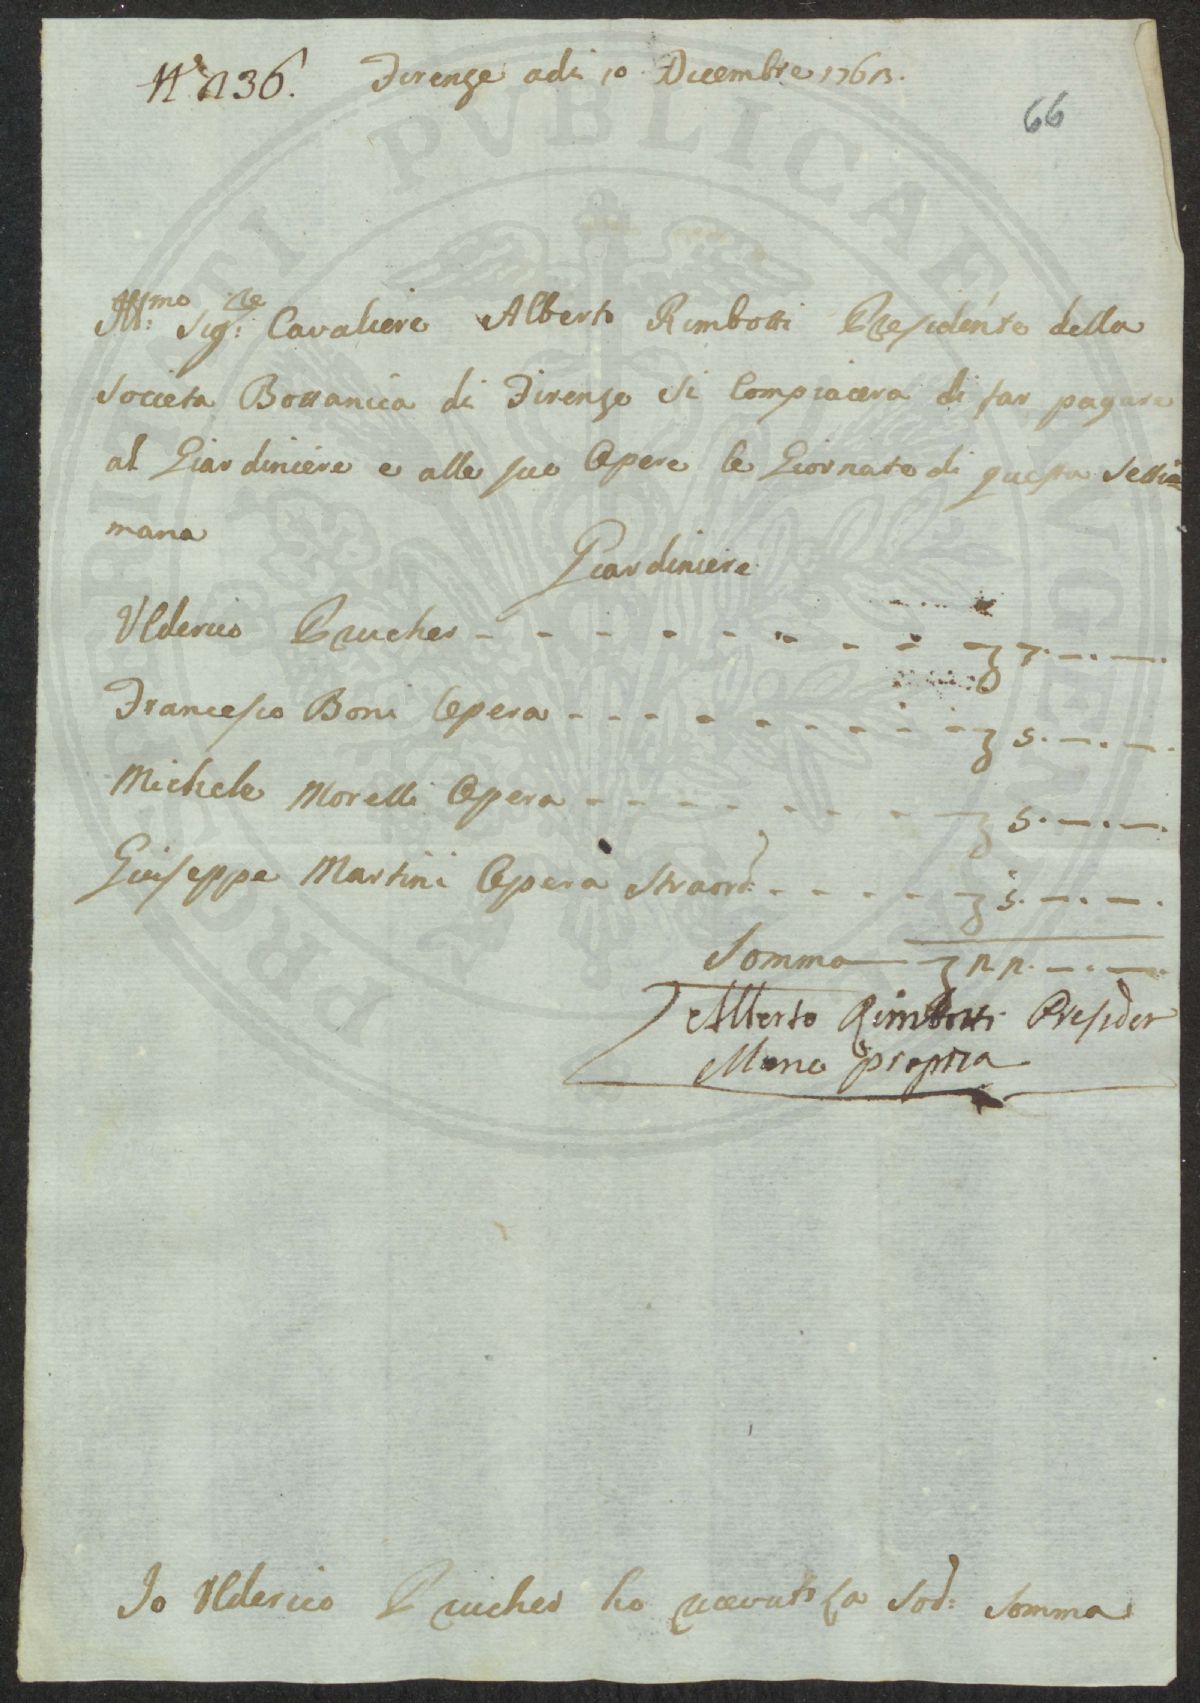 N.° 136. Firenze adi 10 Dicembre 1763.
66
Ill:mo Sig:re Cavaliere Alberto Rimbotti Presidente della
Societa Bottanica di Firenze si Compiacera di far pagare
al Giardiniere e alle sue Opere le Giornate di questa Setti=
mana
Giardiniere
Ulderico Prucher - - - - - - - - - 7. —. —.
Francesco Boni Opera - - - - - - - - 5. —. —.
Michele Morelli Opera - - - - - - - 5. —. —.
Giuseppe Martini Opera Straord: - - - - 5. —. —.
Somma — 22. —. —.
Alberto Rimbotti Presiden
Mano propria
Io Ulderico Prucher ho ricevuto la Sod: Somma
PROSPERITATI PVBLICAE AVGENDAE